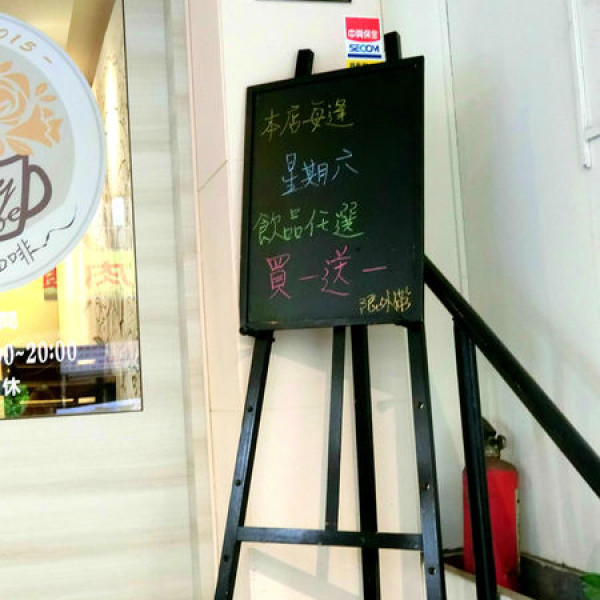 2015-
中興保全
SECOM
本店每逢
星期六
飲品任選
買一送一
限外帶
啡
間
0~20:00
休